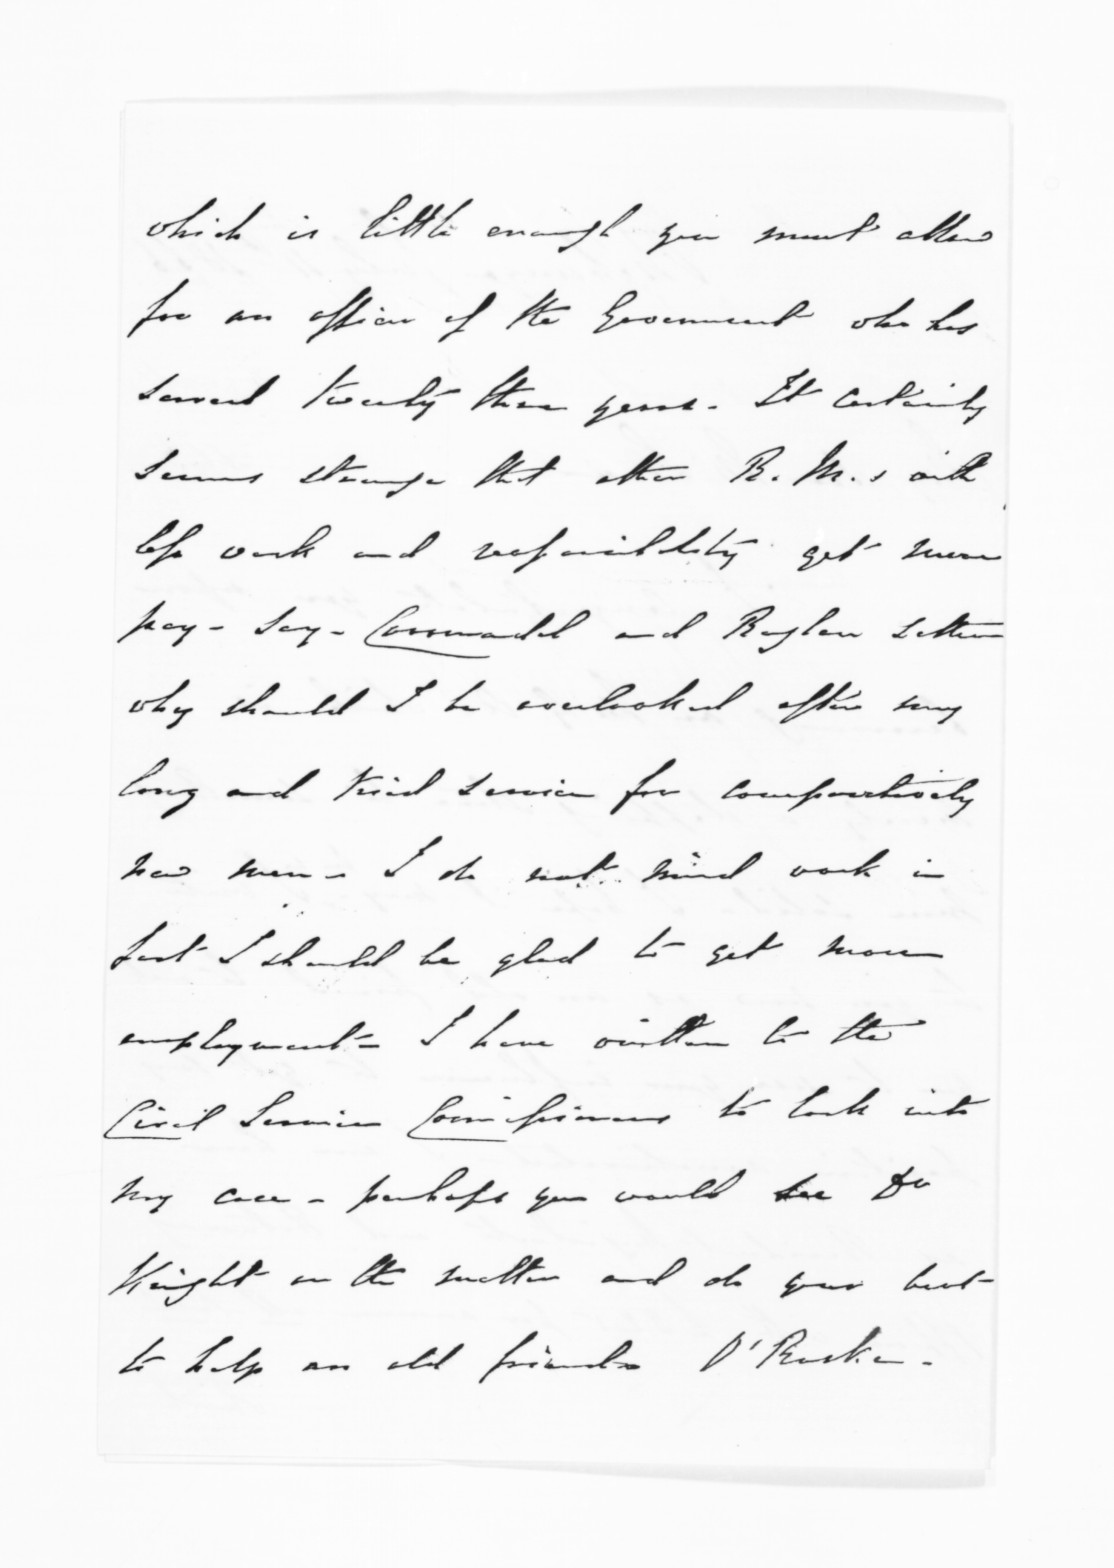 which is little enough you must allow
for an officer of the Government who has
served twenty three years - It certainly
seems strange that other R. M.s with
less work and responsibility get more
pay - say - Coromandel and Raglan
why should I be overlooked after my
long and tried service for comparitively
new men - I do not mind work in
fact I should be glad to get more
employment - I have written to the
Civil Service Commissioners to look into
my case - perhaps you would see Dr
Knight on the matter and do your best
to help an old friend